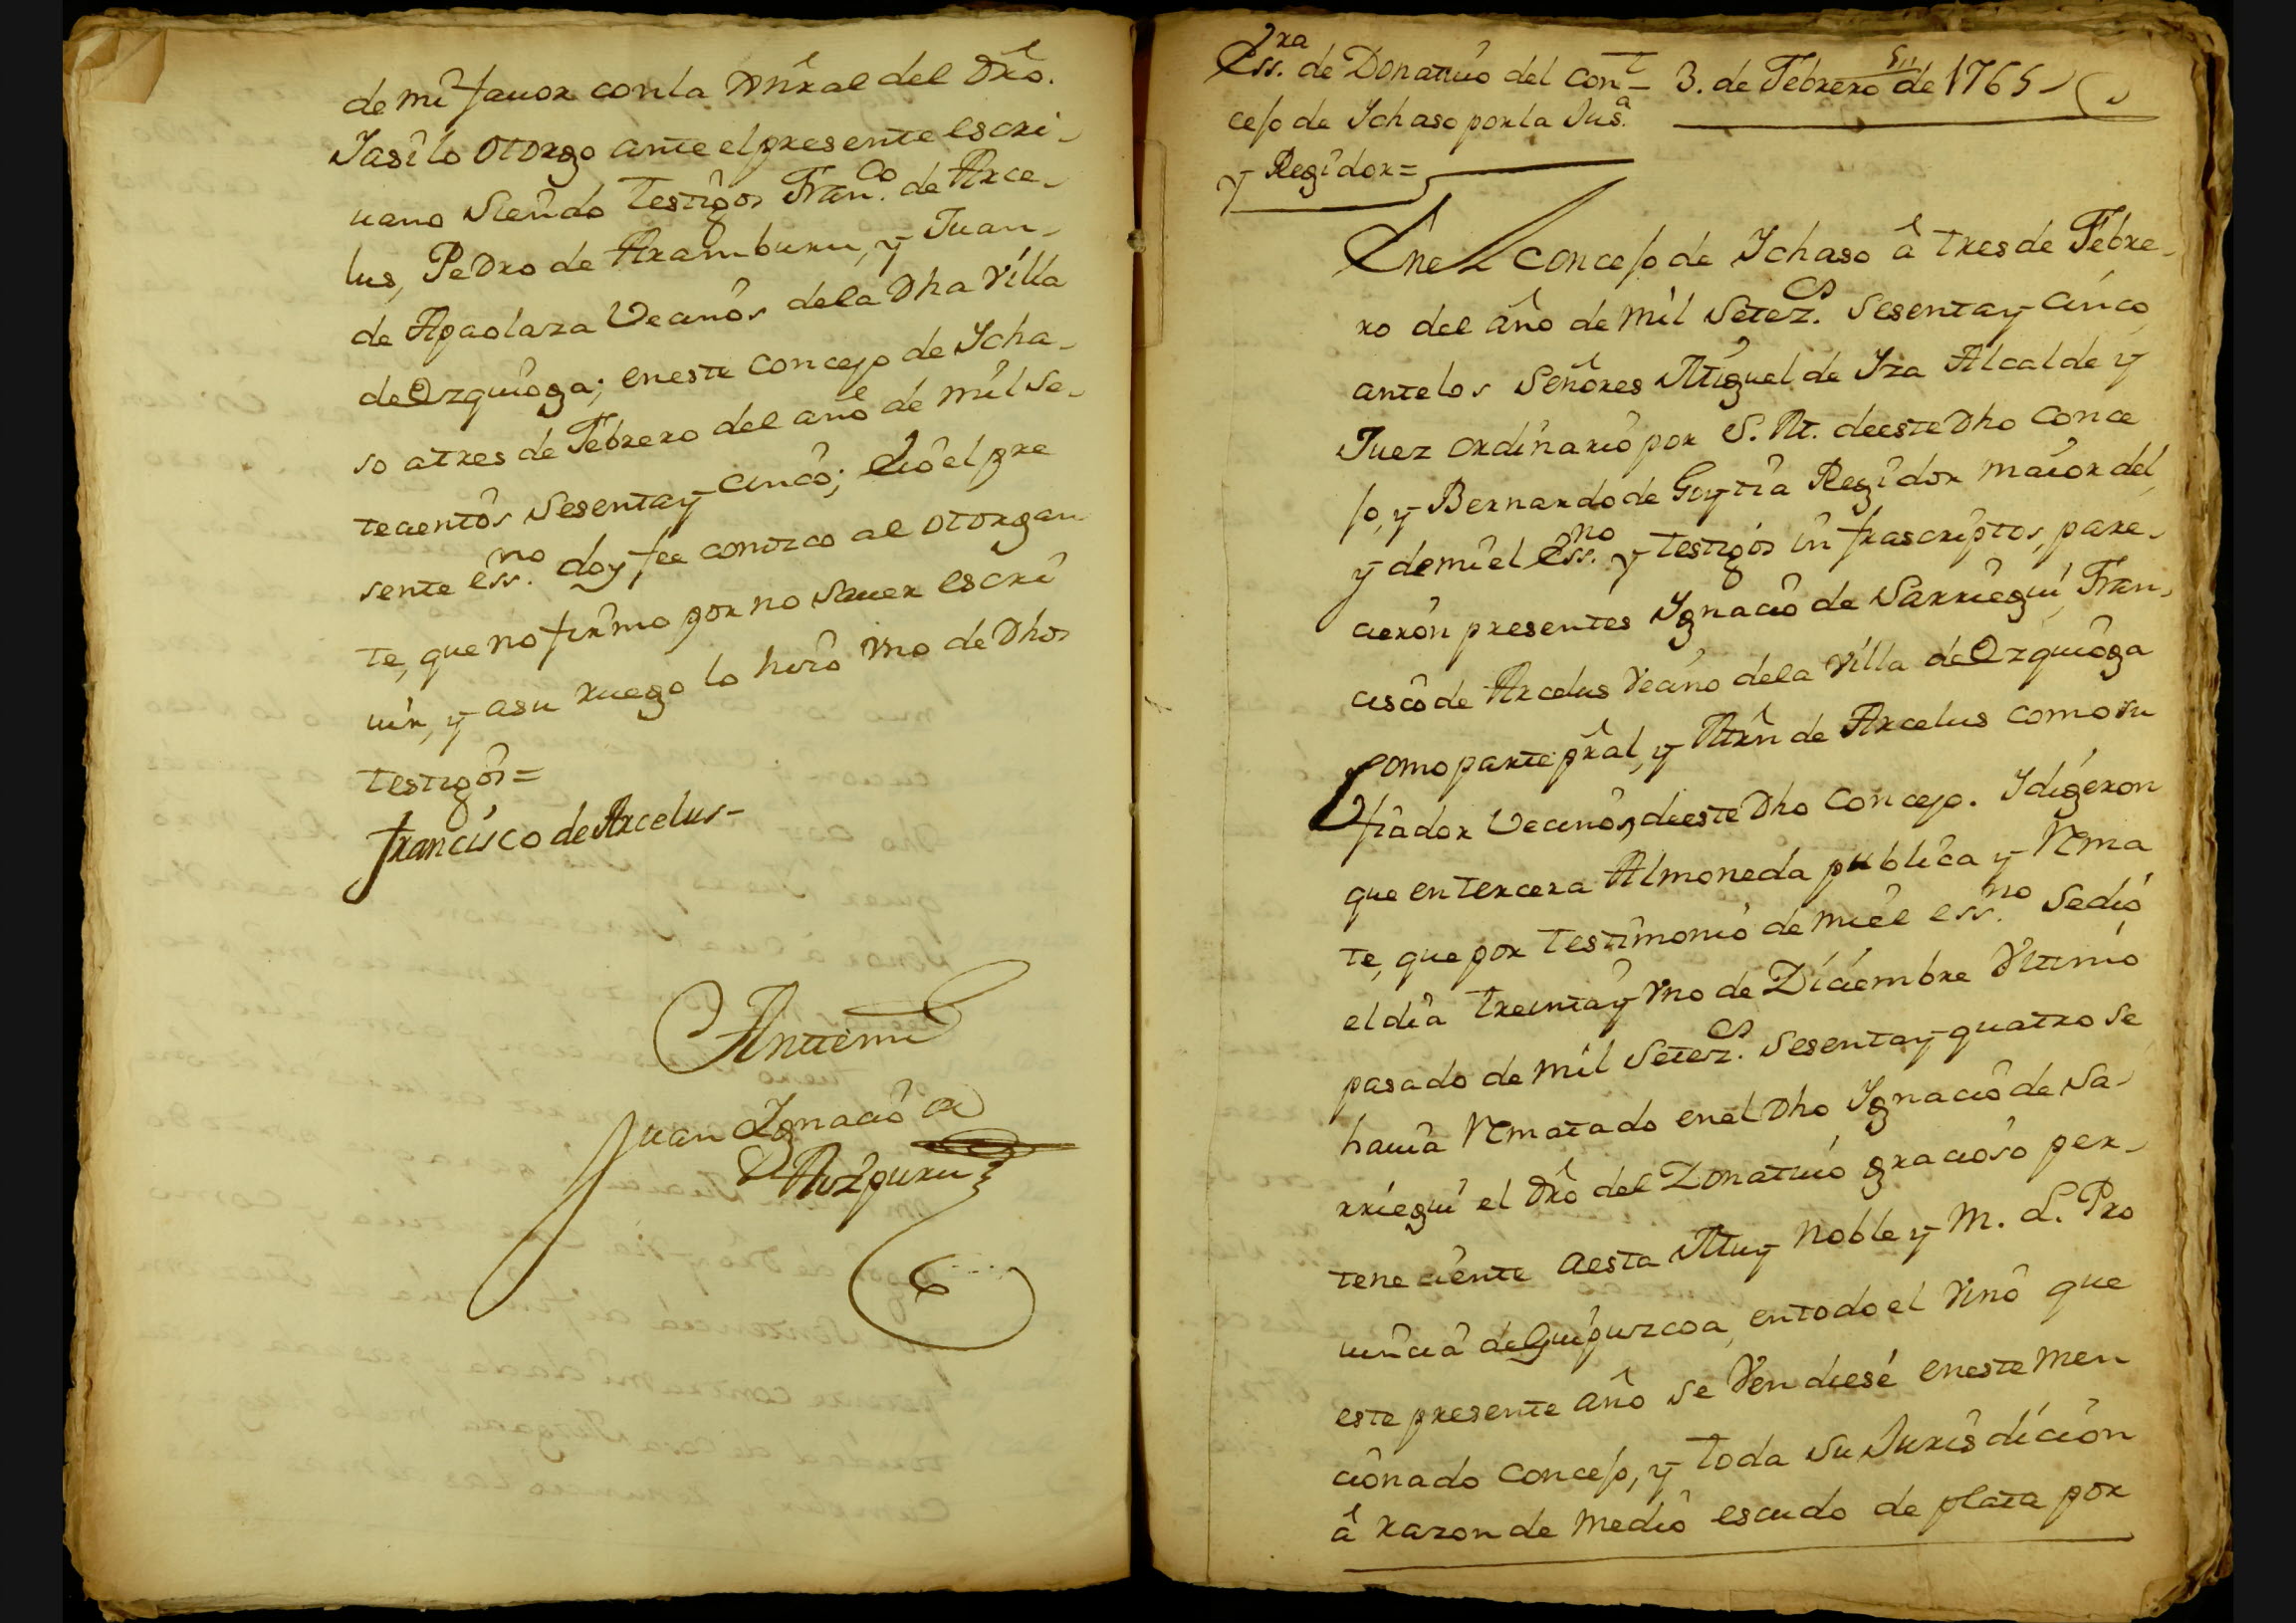 de mi favor con la Gñral del Dro.
Jasilo otorgo ante el presente escri-
uano siendo testigos Fran.co de Arce-
lus, Pedro de Aramburu, y Juan-
de Apaolaza Vecinos dela Dha Villa
de Ezquioga; eneste concejo de Ycha-
so a tres de Febrero del año de mil se-
tecientos Sesenta y cinco; Eio el pre
sente ess.no doy fee conozco al otorgan
te, que no firmo por no sauer escri
uir, y asu ruego lo hizo vno de Dhos
testigos=
Francisco de Arcelus-
Antemi
Juan Ygnacio de
Aizpuru
Ess.ra de Donatiuo del con-
cejo de Ychaso por la Jus.a
y Regidor=
3. de Febrero de 1765
Enel concejo de Ychaso â tres de Febre-
ro del año de mil Setez.os Sesenta y cinco
antelos Señores Miguel de Yza Alcalde y
Juez ordinario por S. M. deeste Dho conce
jo, y Bernardo de Guytia Regidor maior del,
y demi el Ess.no y testigos infrascriptos, pare-
cieron presentes Ygnacio de Sarriegui, Fran-
cisco de Arcelus Vecino dela Villa de Ezquioga
Como parte pñral, y Mrn de Arcelus como su
fiador Vecinos deeste Dho Concejo. Y digeron
que en tercera Almoneda publica y Rema
te, que por testimonio de mi el ess.no Sedió
el dia treinta y vno de Diciembre Vltimo
pasado de mil Setez.os Sesenta y quatro se
hauia Rematado enel Dho Ygnacio de Sa-
rriegui el Dro del Donatiuo gracioso per-
teneciente aesta Muy Noble y M. L. Pro
uincia de Guipuzcoa, entodo el Vino que
este presente año se Vendiese eneste men
cionado concejo, y toda su Jurisdicion
â razon de medio escudo de plata por